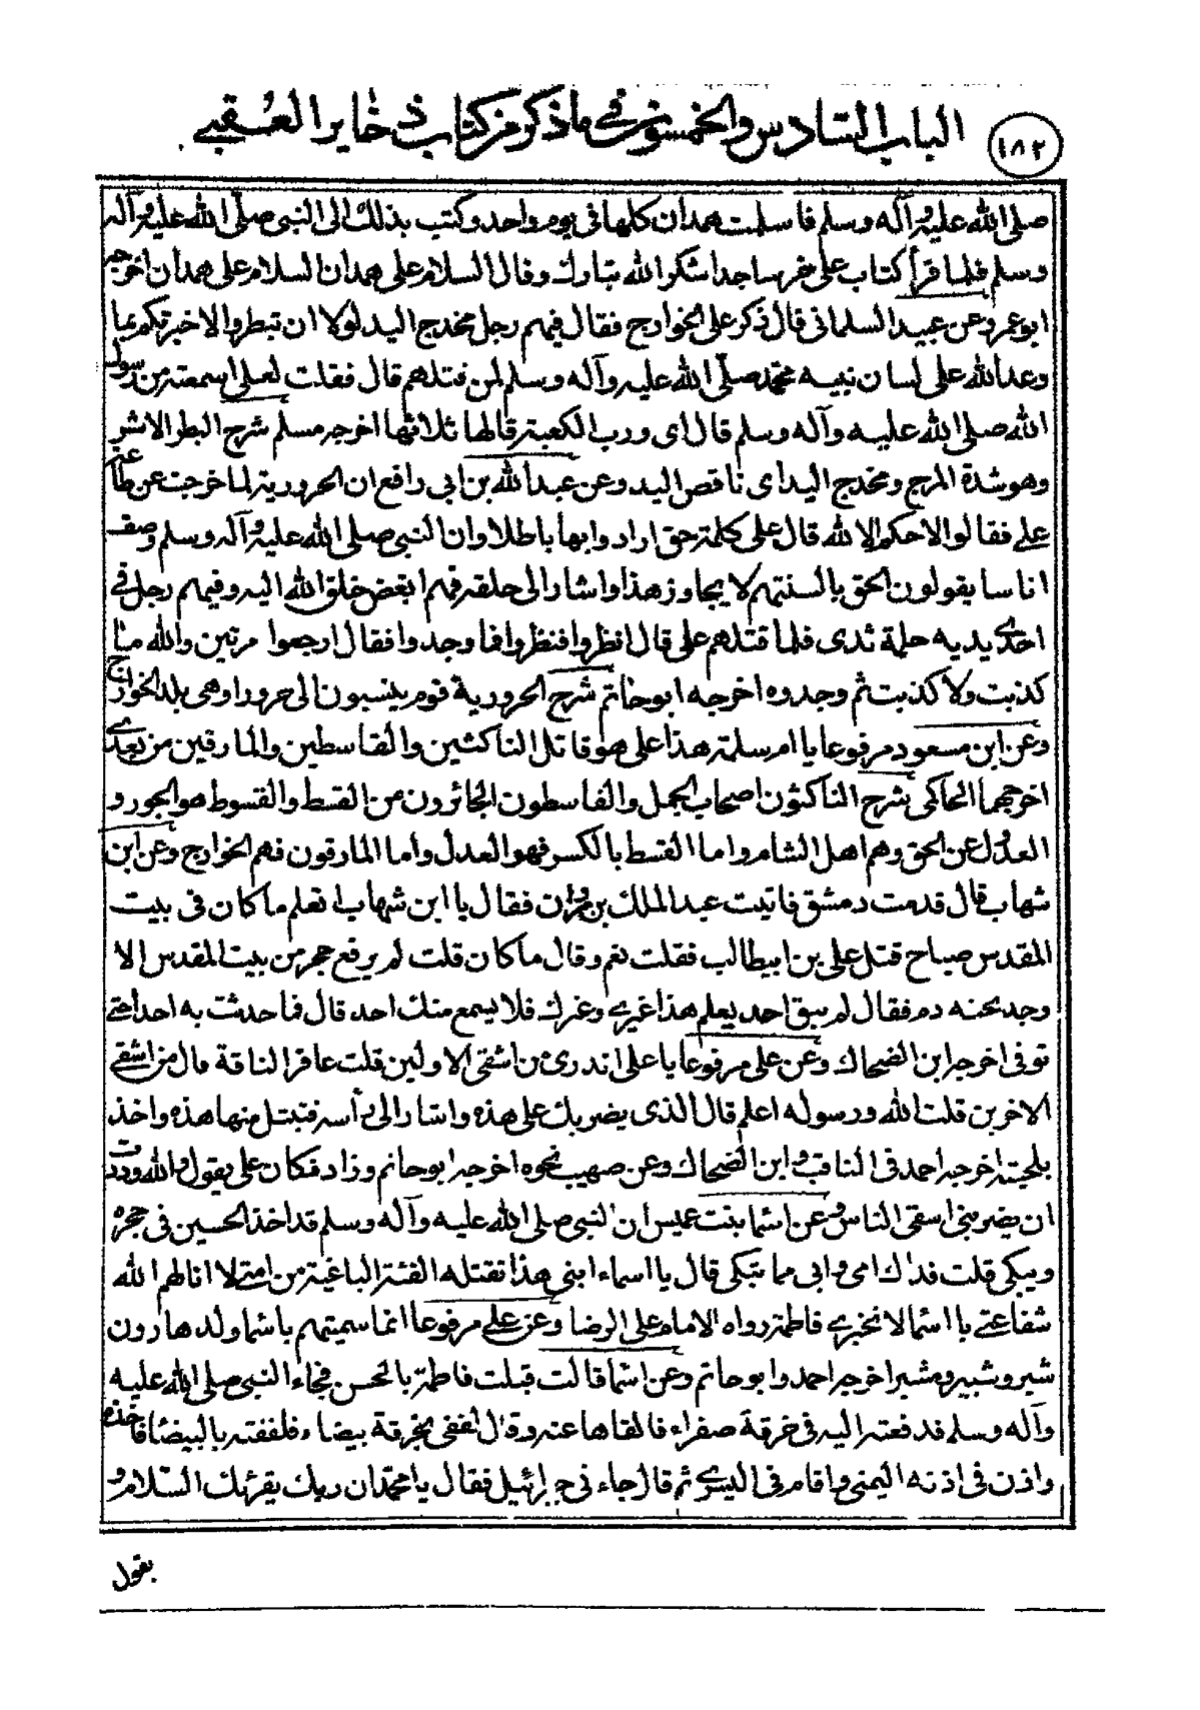 ١٨٢
الباب السادس والخمسون في ما ذكر من كتاب ذخاير العقبى
صلى الله عليه وآله وسلم فاسلمت همدان كلها في يوم واحد وكتب بذلك الى النبي صلى الله عليه وآله
وسلم فلما قرأ كتاب علي خر ساجدا شكرا لله تبارك وقال السلام على همدان السلام على همدان اخرجه
ابو عمر وعن عبيد السلماني قال ذكر علي الخوارج فقال فيهم رجل مخدج اليد لولا ان تبطروا لاخبرتكم بما
وعد الله على لسان نبيه محمد صلى الله عليه وآله وسلم لمن قتلهم قال فقلت لعلي اسمعته من رسول
الله صلى الله عليه وآله وسلم قال اى ورب الكعبة قالها ثلاثا اخرجه مسلم شرح البطر الاشر
وهو شدة المرح ومخدج اليد اى ناقص اليد وعن عبد الله بن ابى رافع ان الحرورية لما خرجت عن طاعة
علي فقالوا لا حكم الا لله قال علي كلمة حق ارادوا بها باطلا وان النبي صلى الله عليه وآله وسلم وصف
اناسا يقولون الحق بالسنتهم لا يجاوز هذا واشار الى حلقه فهم ابغض خلق الله اليه وفيهم رجل في
احدى يديه حلمة ثدى فلما قتلهم علي قال انظروا فنظروا فما وجدوا فقال ارجعوا مرتين والله ما
كذبت ولا كذبت ثم وجدوه اخرجه ابو حاتم شرح الحرورية قوم ينسبون الى حرورا وهى بلد الخوارج
وعن ابن مسعود مرفوعا يا ام سلمة هذا علي هو قاتل الناكثين والقاسطين والمارقين من بعدي
اخرجهما الحاكمى شرح الناكثون اصحاب الجمل والقاسطون الجائرون من القسط والقسوط هو الجور و
العدول عن الحق وهم اهل الشام واما القسط بالكسر فهو العدل واما المارقون فهم الخوارج وعن ابن
شهاب قال قدمت دمشق فاتيت عبد الملك بن مروان فقال يا ابن شهاب اتعلم ما كان في بيت
المقدس صباح قتل علي بن ابيطالب فقلت نعم وقال ما كان قلت لم يرفع حجر من بيت المقدس الا
وجد تحته دم فقال لم يبق احد يعلم هذا غيري وغيرك فلا يسمع منك احد قال فما حدثت به احدا حتى
توفى اخرجه ابن الضحاك وعن علي مرفوعا يا علي اتدرى من اشقى الاولين قلت عاقر الناقة قال من اشقى
الاخرين قلت الله ورسوله اعلم قال الذى يضربك على هذه واشار الى رأسه فتبتل منها هذه واخذ
بلحيته اخرجه احمد فى المناقب وابن الضحاك وعن صهيب نحوه اخرجه ابو حاتم وزاد فكان علي يقول والله وددت
ان يضربنى اشقى الناس وعن اسما بنت عميس ان النبي صلى الله عليه وآله وسلم قد اخذ الحسين فى حجره
ويبكى قلت فداك امى وابى مما تبكى قال يا اسماء ابنى هذا تقتله الفئة الباغية من امتى لا انالهم الله
شفاعتى يا اسما لا تخبري فاطمة رواه الامام علي الرضا وعن علي مرفوعا انما سميتهم باسما ولد هارون
شبر وشبير ومشبر اخرجه احمد وابو حاتم وعن اسما قالت قبلت فاطمة بالحسن فجاء النبي صلى الله عليه
وآله وسلم فدفعته اليه فى خرقة صفراء فالقاها عنه وقال لففى بخرقة بيضاء فلففته بالبيضا فاخذه
واذن فى اذنه اليمنى واقام فى اليسرى ثم قال جاءنى جبرائيل فقال يا محمد ان ربك يقرئك السلام و
يقول